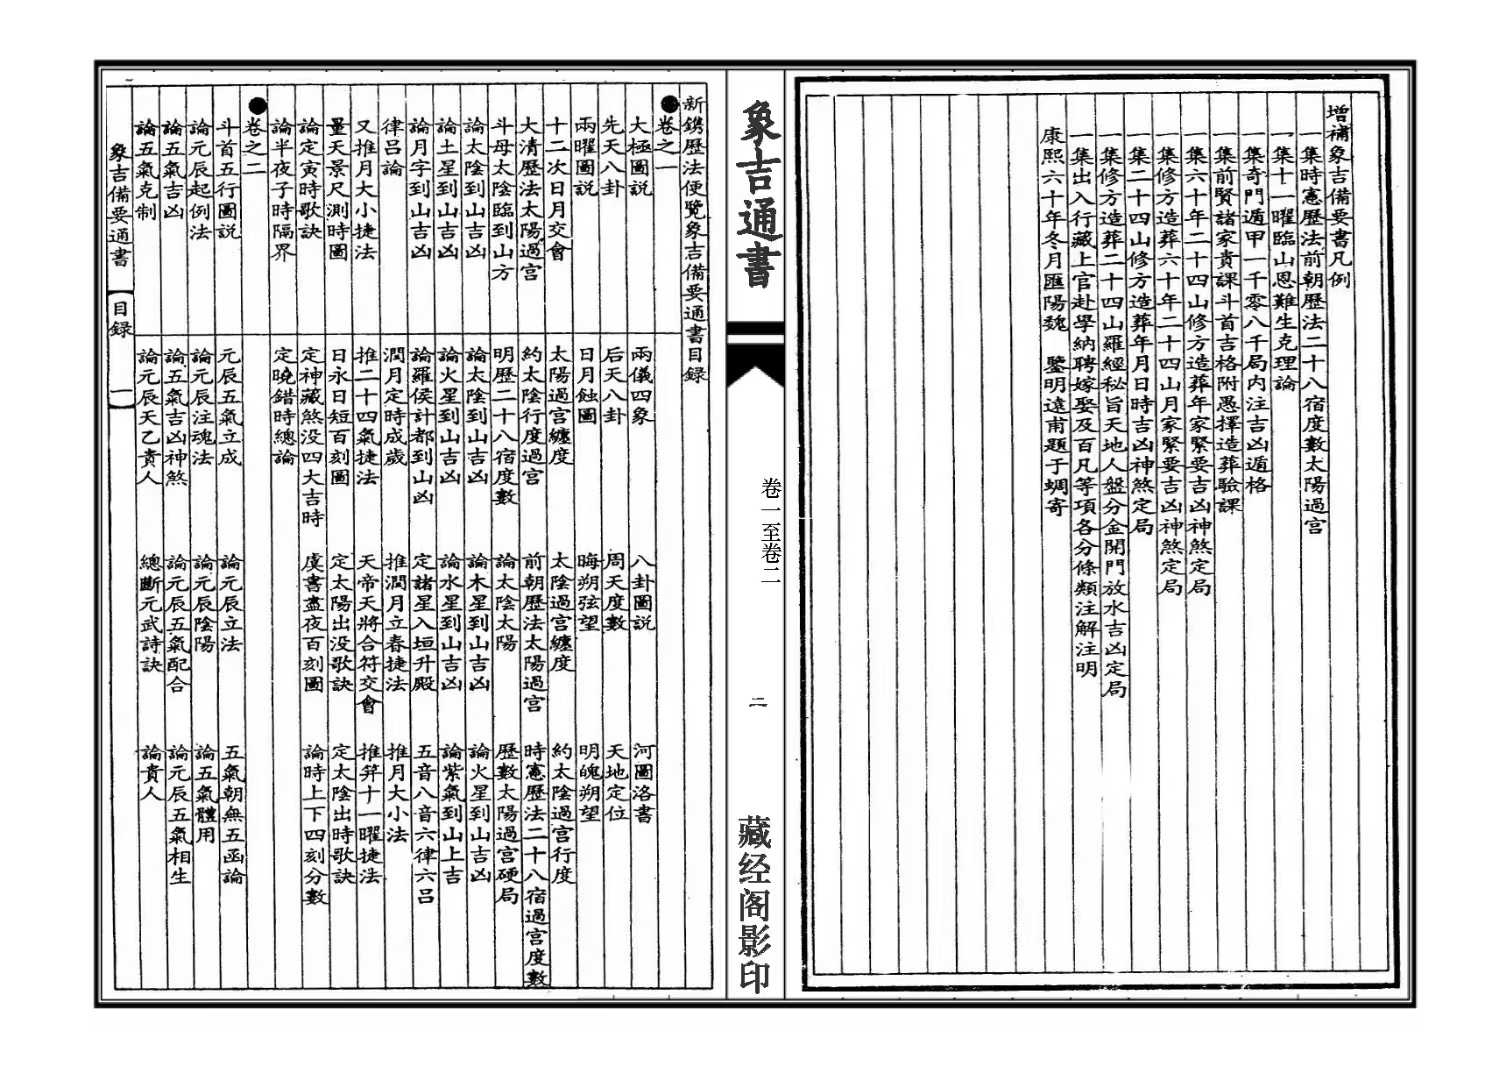 增補象吉備要書凡例
一集時憲歷法前朝歷法二十八宿度數太陽過宫
一集十一曜臨山恩難生克理論
一集奇門遁甲一千零八千局内注吉凶遁格
一集前賢諸家貴課斗首吉格附愚擇造葬驗課
一集六十年二十四山修方造葬年家緊要吉凶神煞定局
一集修方造葬六十年二十四山月家緊要吉凶神煞定局
一集二十四山修方造葬年月日時吉凶神煞定局
一集修方造葬二十四山羅經秘旨天地人盤分金開門放水吉凶定局
一集出入行藏上官赴學納聘嫁娶及百凡等項各分條類注解注明
康熙六十年冬月匯陽魏 鑒明遠甫題于蜩寄
象吉通書
卷一至卷二
二
藏经阁影印
新鐫歷法便覽象吉備要通書目録
●卷之一
大極圖説 兩儀四象 八卦圖説 河圖洛書
先天八卦 后天八卦 周天度數 天地定位
兩曜圖説 日月蝕圖 晦朔弦望 明魄朔望
十二次日月交會 太陽過宫纏度 太陰過宫纏度 約太陰過宫行度
大清歷法太陽過宫 約太陰行度過宫 前朝歷法太陽過宫 時憲歷法二十八宿過宫度數
斗母太陰臨到山方 明歷二十八宿度數 論太陰太陽 歷數太陽過宫硬局
論太陰到山吉凶 論太陰到山吉凶 論木星到山吉凶 論火星到山吉凶
論土星到山吉凶 論火星到山吉凶 論水星到山吉凶 論紫氣到山上吉
論月字到山吉凶 論羅侯計都到山凶 定諸星入垣升殿 五音八音六律六吕
律吕論 潤月定時成歲 推潤月立春捷法 推月大小法
又推月大小捷法 推二十四氣捷法 天帝天將合符交會 推弄十一曜捷法
量天景尺測時圖 日永日短百刻圖 定太陽出没歌訣 定太陰出時歌訣
論定寅時歌訣 定神藏煞没四大吉時 虞書盡夜百刻圖 論時上下四刻分數
論半夜子時隔界 定曉錯時總論
●卷之二
斗首五行圖説 元辰五氣立成 論元辰立法 五氣朝無五函論
論元辰起例法 論元辰注魂法 論元辰陰陽 論五氣體用
論五氣吉凶 論五氣吉凶神煞 論元辰五氣配合 論元辰五氣相生
論五氣克制 論元辰天乙貴人 總斷元武詩訣 論貴人
象吉備要通書 目録 一